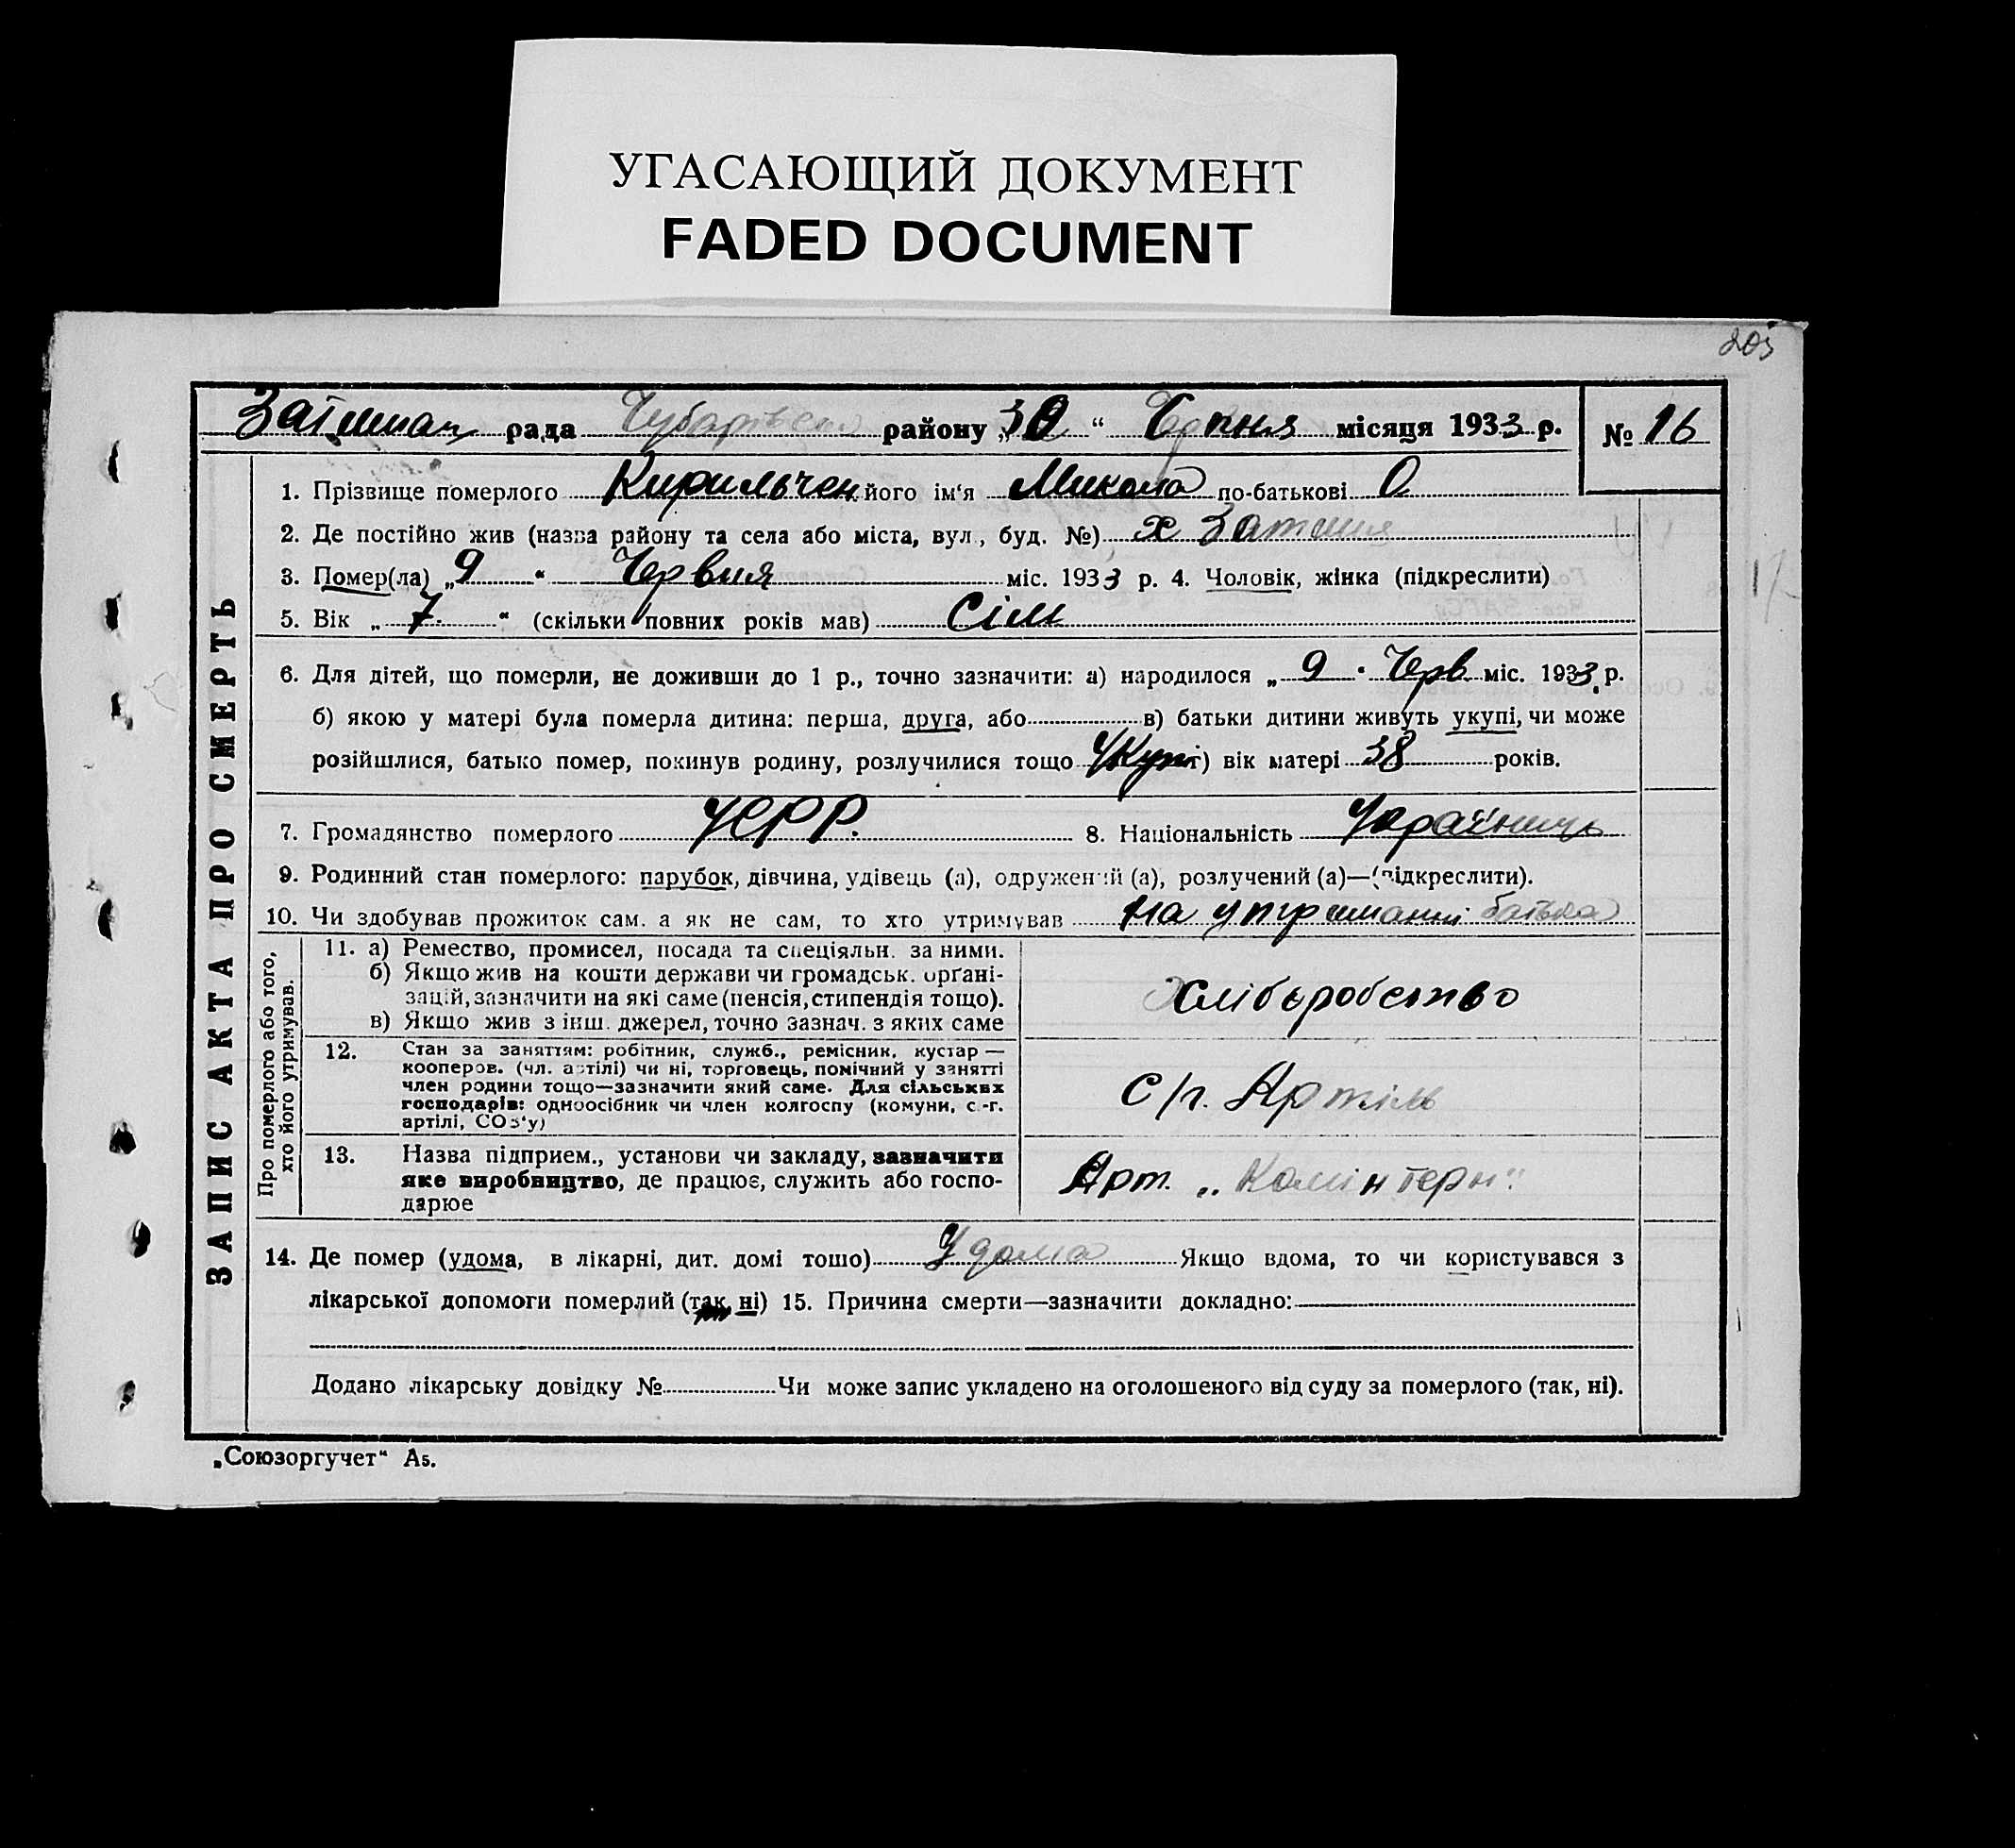 УГАСАЮЩИЙ ДОКУМЕНТ
FADED DOCUMENT
205
рада Чубарівськ району „30“ місяця 1933 р. № 16
ЗАПИС АКТА ПРО СМЕРТЬ
1. Прізвище померлого Кирильчен його ім'я Микола по-батькові О
2. Де постійно жив (назва району та села або міста, вул., буд. №) х Затишшя
3. Помер(ла) „9“ Червня міс. 1933 р. 4. Чоловік, жінка (підкреслити)
5. Вік „7“ (скільки повних років мав) Сім
6. Для дітей, що померли, не доживши до 1 р., точно зазначити: а) народилося „9“ Черв міс. 1933 р.
б) якою у матері була померла дитина: перша, друга, або в) батьки дитини живуть укупі, чи може
розійшлися, батько помер, покинув родину, розлучилися тощо Укупі г) вік матері 38 років.
7. Громадянство померлого УСРР. 8. Національність Українець
9. Родинний стан померлого: парубок, дівчина, удівець (а), одружений (а), розлучений (а)—(підкреслити).
10. Чи здобував прожиток сам. а як не сам, то хто утримував на утриманні батька
Про померлого або того,
хто його утримував.
11. а) Ремество, промисел, посада та спеціяльн. за ними.
б) Якщо жив на кошти держави чи громадськ. орґані-
зацій, зазначити на які саме (пенсія, стипендія тощо).
в) Якщо жив з інш. джерел, точно зазнач. з яких саме
Хліборобство
12. Стан за заняттям: робітник, служб., ремісник, кустар —
кооперов. (чл. артілі) чи ні, торговець, помічний у занятті
член родини тощо—зазначити який саме. Для сільських
господарів: одноосібник чи член колгоспу (комуни, с.-г.
артілі, СОЗ'у)
С/г. Артіль
13. Назва підприєм., установи чи закладу, зазначити
яке виробництво, де працює, служить або госпо-
дарює
Арт. „Комінтерн"
14. Де помер (удома, в лікарні, дит. домі тошо) Удома Якщо вдома, то чи користувався з
лікарської допомоги померлий (так, ні) 15. Причина смерти—зазначити докладно:
Додано лікарську довідку № Чи може запис укладено на оголошеного від суду за померлого (так, ні).
„Союзоргучет“ А5.